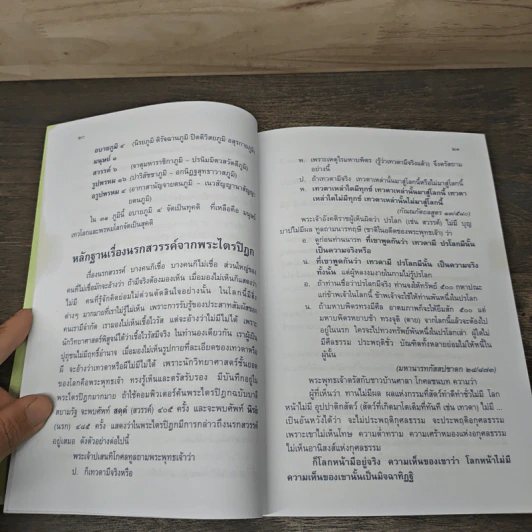 ๒๐
อบายภูมิ ๔ (นิรยภูมิ ดิรัจฉานภูมิ ปิตติวิสยภูมิ อสุรกายภูมิ)
มนุษย์ ๑
สวรรค์ ๖ (จาตุมหาราชิกาภูมิ – ปรนิมมิตวสวัตดีภูมิ)
รูปพรหม ๑๖ (ปาริสัชชาภูมิ – อกนิฏฐสุทธาวาสภูมิ)
อรูปพรหม ๔ (อากาสานัญจายตนภูมิ – เนวสัญญานาสัญญา
ยตนภูมิ)
ใน ๓๑ ภูมินี้ อบายภูมิ ๔ จัดเป็นทุคติ ที่เหลือคือ มนุษย์
เทวโลกและพรหมโลกจัดเป็นสุคติ
หลักฐานเรื่องนรกสวรรค์จากพระไตรปิฎก
เรื่องนรกสวรรค์ บางคนก็เชื่อ บางคนไม่เชื่อ ส่วนใหญ่ของ
คนที่ไม่เชื่อมักจะอ้างว่า ถ้ามีจริงต้องมองเห็น เมื่อมองไม่เห็นก็แสดงว่า
ไม่มี คนที่รู้จักคิดย่อมไม่ด่วนตัดสินใจอย่างนั้น ในโลกนี้มีสิ่ง
ต่างๆ มากมายที่เราไม่รู้ไม่เห็น เพราะการรับรู้ของประสาทสัมผัสของ
คนเรามีจำกัด เรามองไม่เห็นเชื้อไวรัส แต่จะอ้างว่าไม่มีไม่ได้ เพราะ
นักวิทยาศาสตร์พิสูจน์ได้ว่าเชื้อไวรัสมีจริง ในทำนองเดียวกัน เราผู้เป็น
ปุถุชนไม่มีฤทธิ์อำนาจ เมื่อมองไม่เห็นรูปกายที่ละเอียดของเทวดาหรือ
ผี จะอ้างว่าเทวดาหรือผีไม่มีไม่ได้ เพราะนักวิทยาศาสตร์ชั้นยอด
ของโลกคือพระพุทธเจ้า ทรงรู้เห็นและตรัสรับรอง มีบันทึกอยู่ใน
พระไตรปิฎกมากมาย ถ้าใช้คอมพิวเตอร์ค้นพระไตรปิฎกฉบับ
สยามรัฐ จะพบศัพท์ สคฺค (สวรรค์) ๕๐๕ ครั้ง และจะพบศัพท์ นิรย
(นรก) ๔๔๕ ครั้ง แสดงว่าในพระไตรปิฎกมีการกล่าวถึงนรกสวรรค์
อยู่เสมอ ดังตัวอย่างต่อไปนี้
พระเจ้าปเสนทิโกศลทูลถามพระพุทธเจ้าว่า
ป. ก็เทวดามีจริงหรือ
๒๑
พ. เพราะเหตุไรมหาบพิตร (รู้ว่าเทวดามีจริงแล้ว) จึงตรัสถาม
อย่างนี้
ป. ถ้าเทวดามีจริง เทวดาเหล่านั้นมาสู่โลกนี้หรือไม่มาสู่โลกนี้
พ. เทวดาเหล่าใดมีทุกข์ เทวดาเหล่านั้นมาสู่โลกนี้ เทวดา
เหล่าใดไม่มีทุกข์ เทวดาเหล่านั้นไม่มาสู่โลกนี้
(กัณณกัตถลสูตร ๑๓/๕๘๐)
พระเจ้าอังคติราชผู้เห็นผิดว่า ปรโลก (เช่น สวรรค์) ไม่มี บุญ
บาปไม่มีผล ทูลถามนารทฤๅษี (ชาติในอดีตของพระพุทธเจ้า) ว่า
อ. ดูก่อนท่านนารท ที่เขาพูดกันว่า เทวดามี ปรโลกมีนั้น
เป็นความจริงหรือ
น. ที่เขาพูดกันว่า เทวดามี ปรโลกมีนั้น เป็นความจริง
ทั้งนั้น แต่ผู้หลงงมงายในกามไม่รู้ปรโลก
อ. ถ้าท่านเชื่อว่าปรโลกมีจริง ท่านจงให้ทรัพย์ ๕๐๐ กหาปณะ
แก่ข้าพเจ้าในโลกนี้ ข้าพเจ้าจะใช้ให้ท่านพันหนึ่งในปรโลก
น. ถ้ามหาบพิตรทรงมีศีล อาตมภาพก็จะให้ยืมสัก ๕๐๐ แต่
มหาบพิตรหยาบช้า ทรงจุติ (ตาย) จากโลกนี้แล้วจะต้องไป
อยู่ในนรก ใครจะไปทวงทรัพย์พันหนึ่งในปรโลกเล่า ผู้ใดไม่
มีศีลธรรม ประพฤติชั่ว บัณฑิตทั้งหลายย่อมไม่ให้หนี้ใน
ผู้นั้น
(มหานารทกัสสปชาดก ๒๘/๘๗๓)
พระพุทธเจ้าตรัสกับชาวบ้านศาลา โกศลชนบท ความว่า
ผู้ที่เห็นว่า ทานไม่มีผล ผลแห่งกรรมที่สัตว์ทำดีทำชั่วไม่มี โลก
หน้าไม่มี อุปปาติกสัตว์ (สัตว์ที่เกิดมาโตเต็มที่ทันที เช่น เทวดา) ไม่มี ...
เป็นอันหวังได้ว่า จะไม่ประพฤติกุศลธรรม จะประพฤติอกุศลธรรม
เพราะเขาไม่เห็นโทษ ความต่ำทราม ความเศร้าหมองแห่งอกุศลธรรม
ไม่เห็นอานิสงส์แห่งกุศลธรรม
ก็โลกหน้ามีอยู่จริง ความเห็นของเขาว่า โลกหน้าไม่มี
ความเห็นของเขานั้นเป็นมิจฉาทิฏฐิ